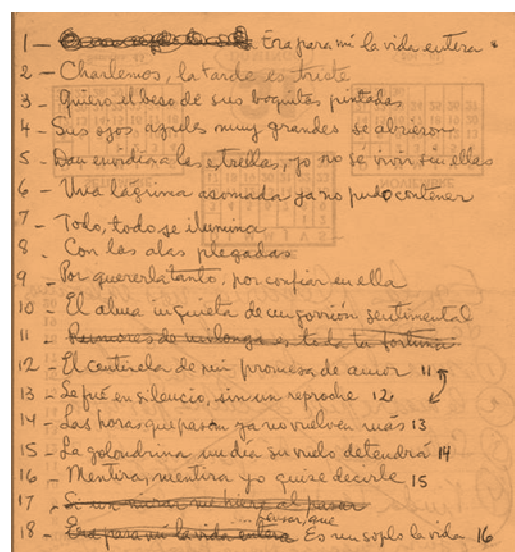 1 - Era para mí la vida entera
2 - Charlemos, la tarde es triste
3 - Quiero el beso de sus boquitas pintadas
4 - Sus ojos azules muy grandes se abrieron
5 - Dan envidia a las estrellas, yo no sé vivir sin ellas
6 - Una lágrima asomada ya no pudo contener
7 - Todo, todo se ilumina
8 - Con las alas plegadas
9 - Por quererla tanto, por confiar en ella
10 - El alma inquieta de un gorrión sentimental
11 - Rumores de milonga es toda tu fortuna
12 - El centinela de mi promesa de amor 11
13 - Se fué en silencio, sin un reproche 12
14 - Las horas que pasan ya no vuelven más 13
15 - La golondrina un día su vuelo detendrá 14
16 - Mentira, mentira yo quise decirle 15
17 - Si una mirar me hiere al pasar
... pasar, que
18 - Era para mí la vida entera Es un soplo la vida 16